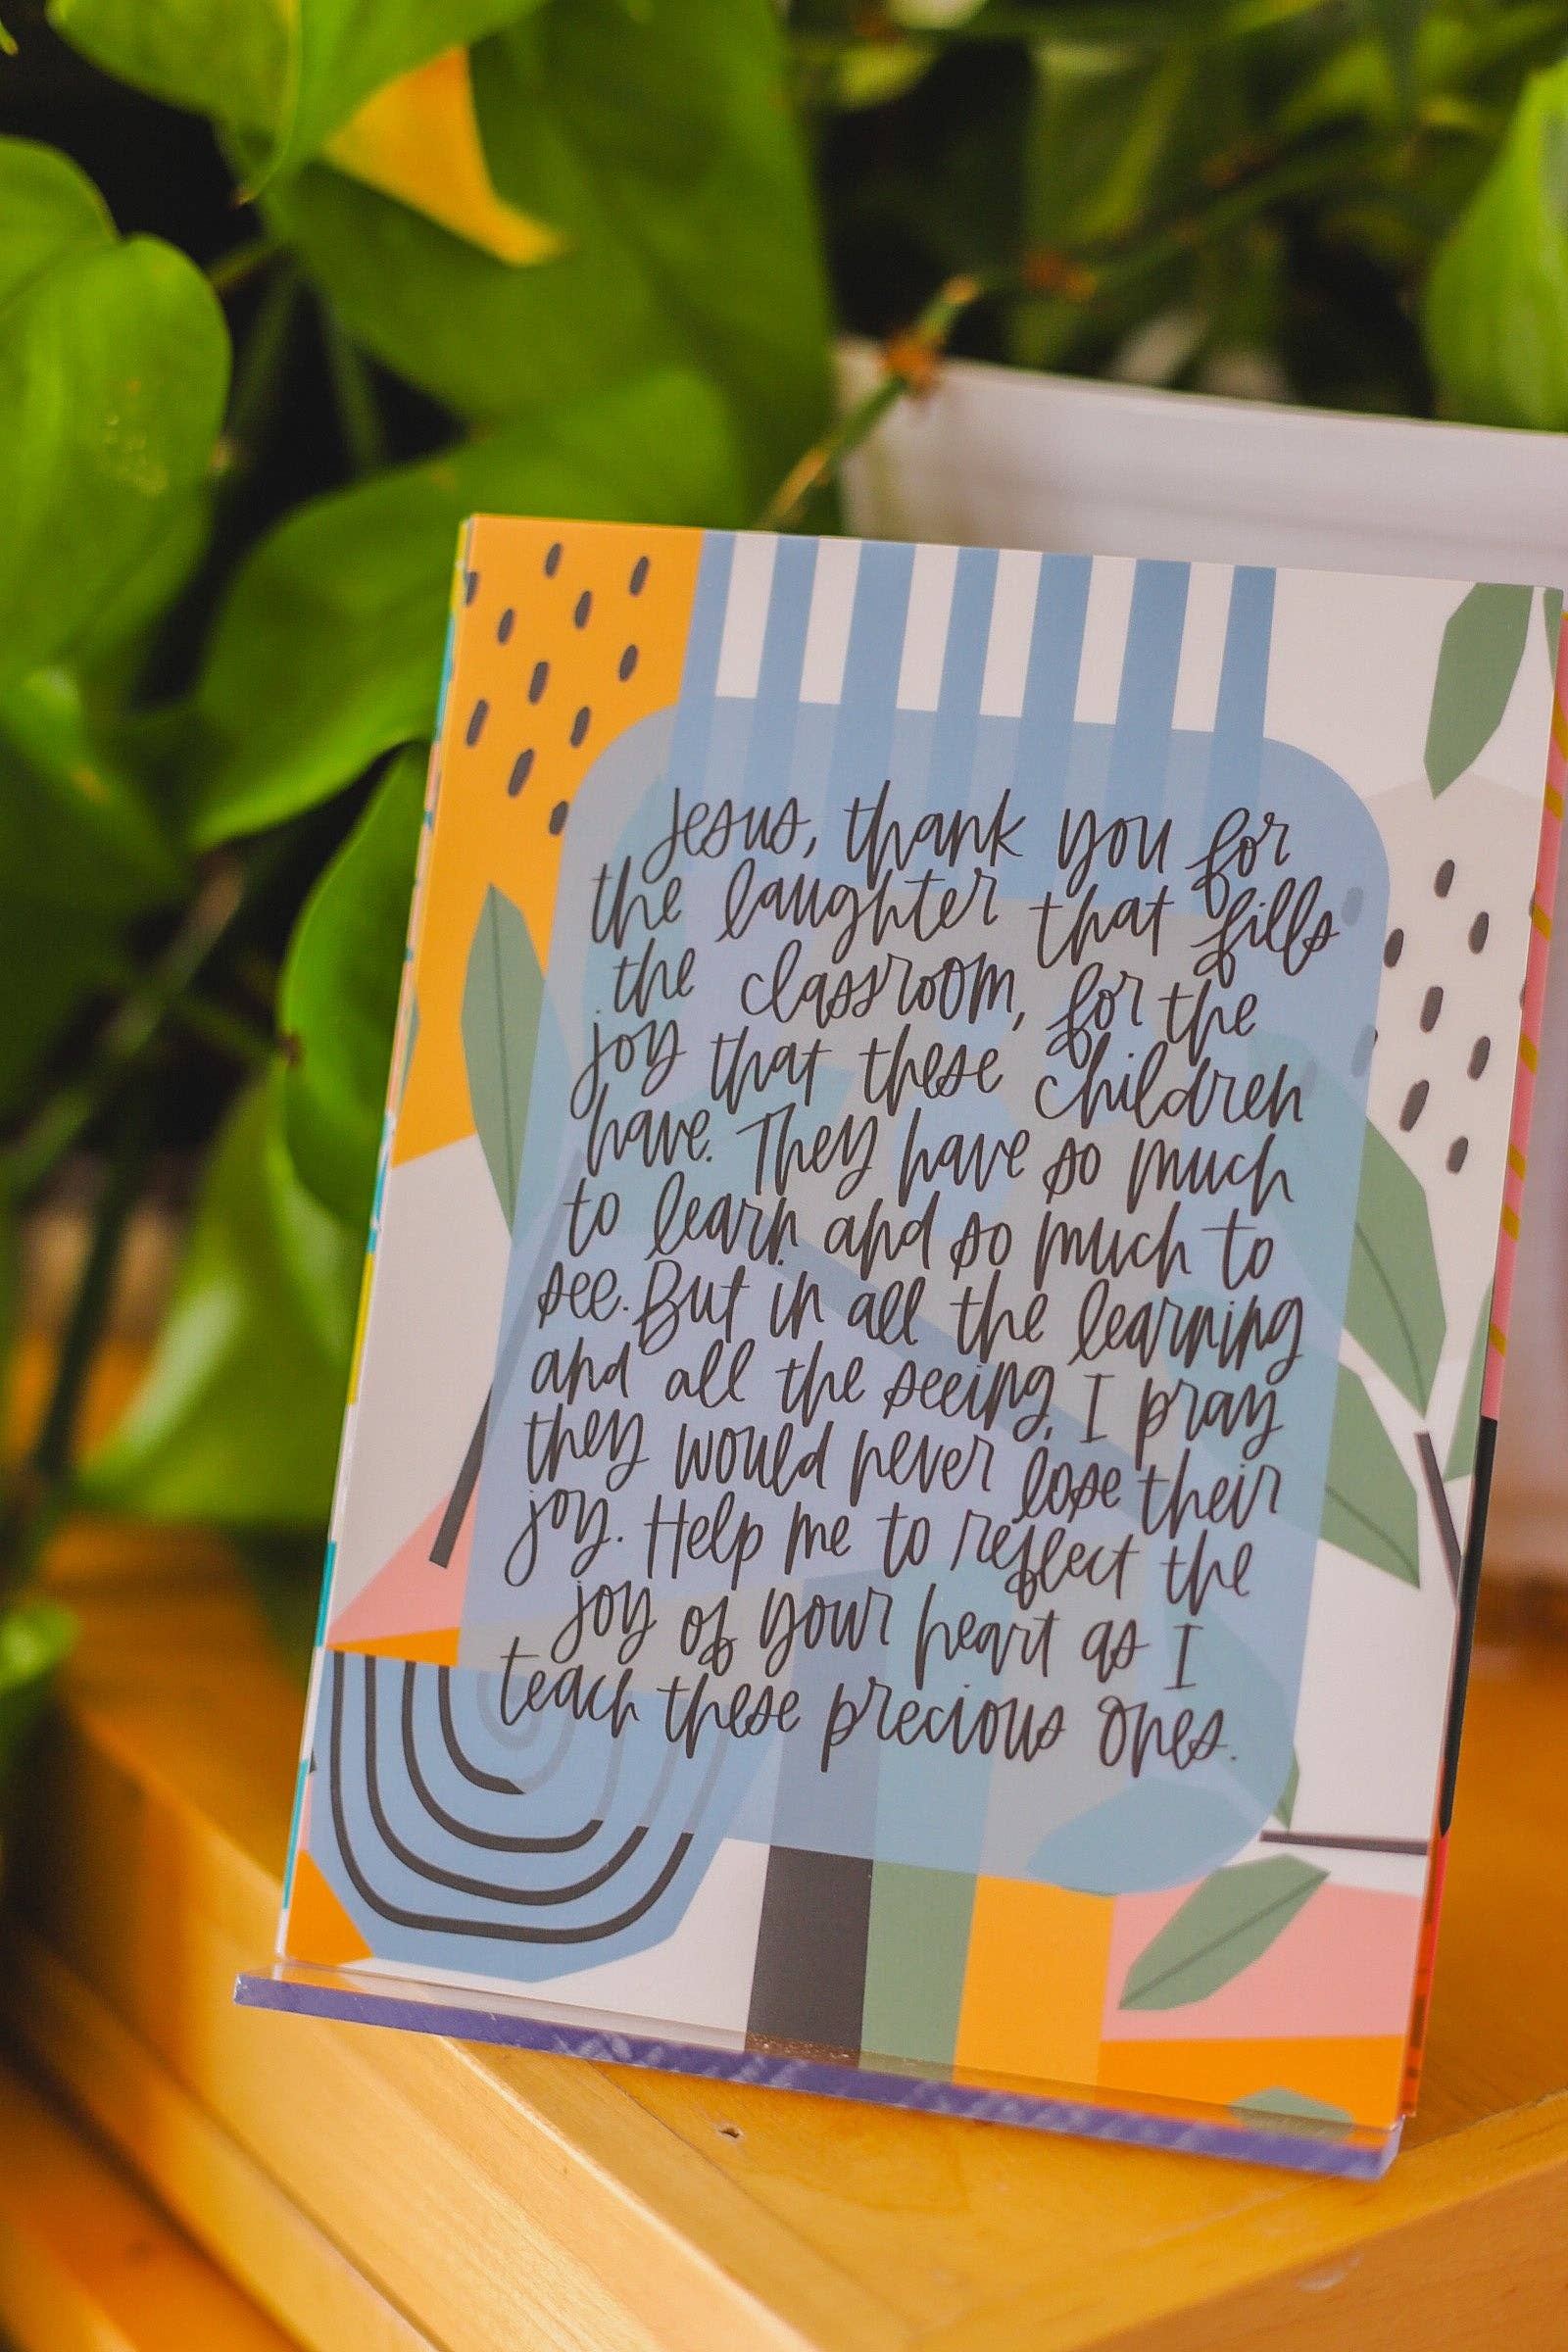 Jesus, thank you for
the laughter that fills
the classroom, for the
joy that these children
have. They have so much
to learn and so much to
see. But in all the learning
and all the seeing, I pray
they would never lose their
joy. Help me to reflect the
joy of your heart as I
teach these precious ones.